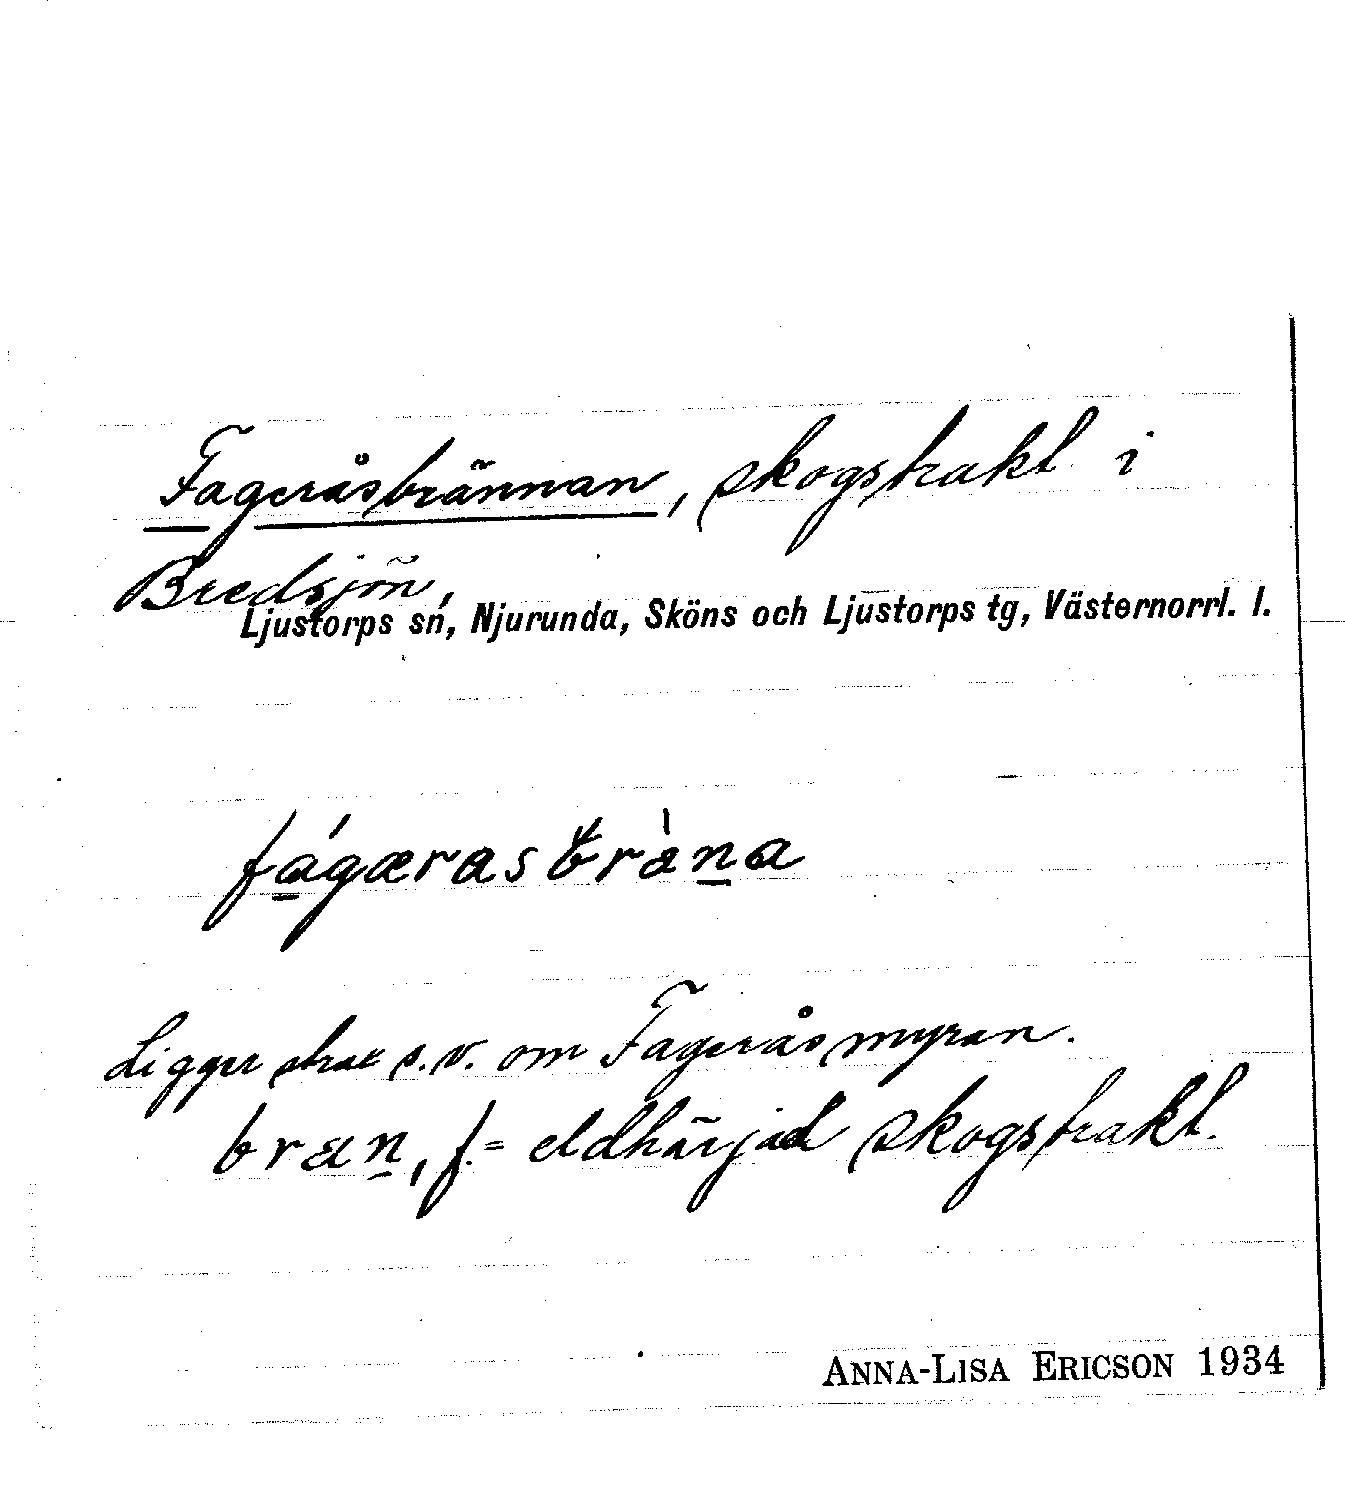 Fageråsbrännan, skogstrakt i
Bredsjön,
Ljustorps sn, Njurunda, Sköns och Ljustorps tg, Västernorrl. l.
fágærasbræ̀na
Ligger strax s.v. om Fageråsmyran.
bræn, f. = eldhärjad skogstrakt.
ANNA-LISA ERICSON 1934